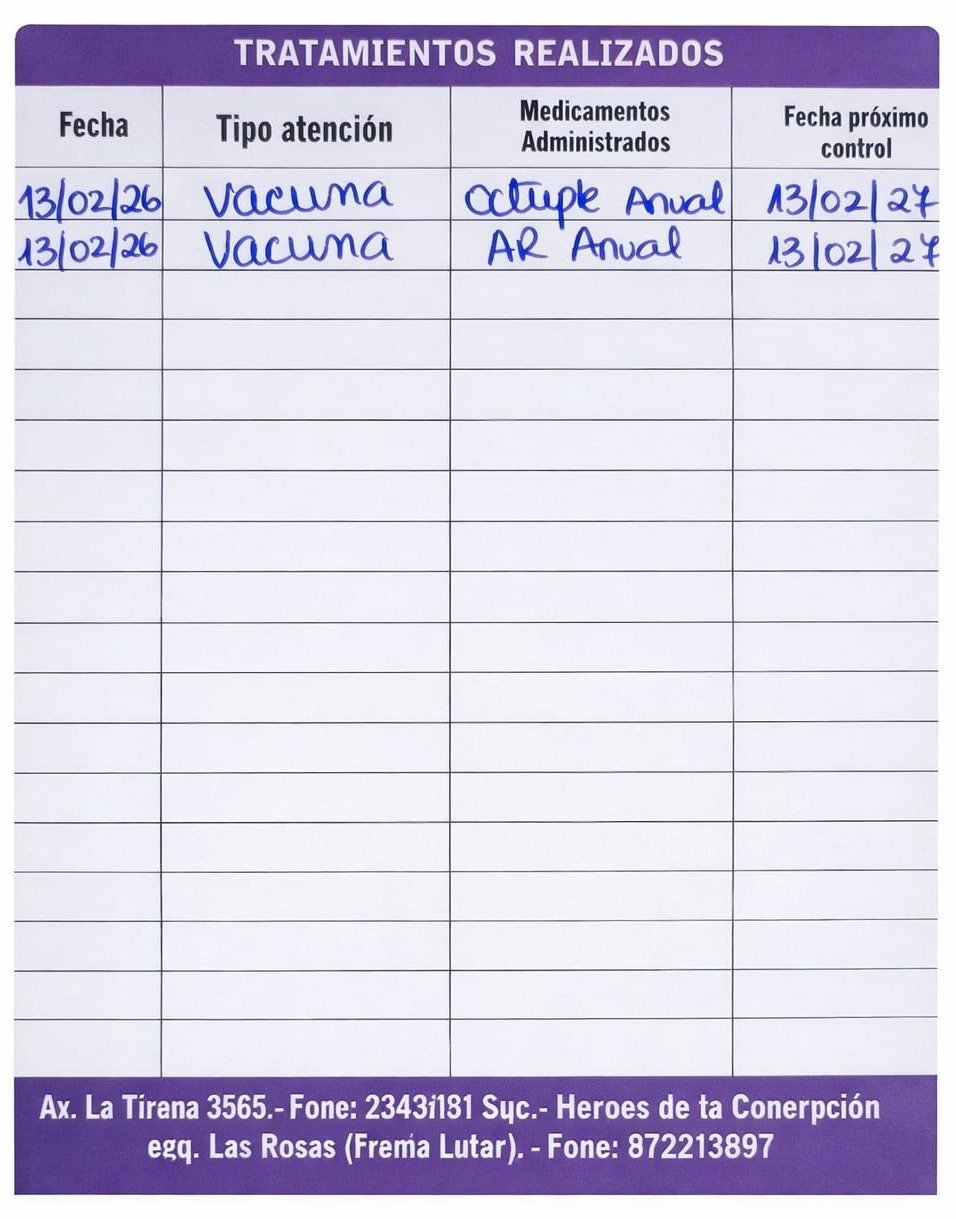 TRATAMIENTOS REALIZADOS
Fecha Tipo atención Medicamentos Administrados Fecha próximo control
13/02/26 Vacuna Octuple Anual 13/02/27
13/02/26 Vacuna AR Anual 13/02/27
Ax. La Tírena 3565.- Fone: 23431181 Syc.- Heroes de ta Conerpción
egq. Las Rosas (Frema Lutar). - Fone: 872213897